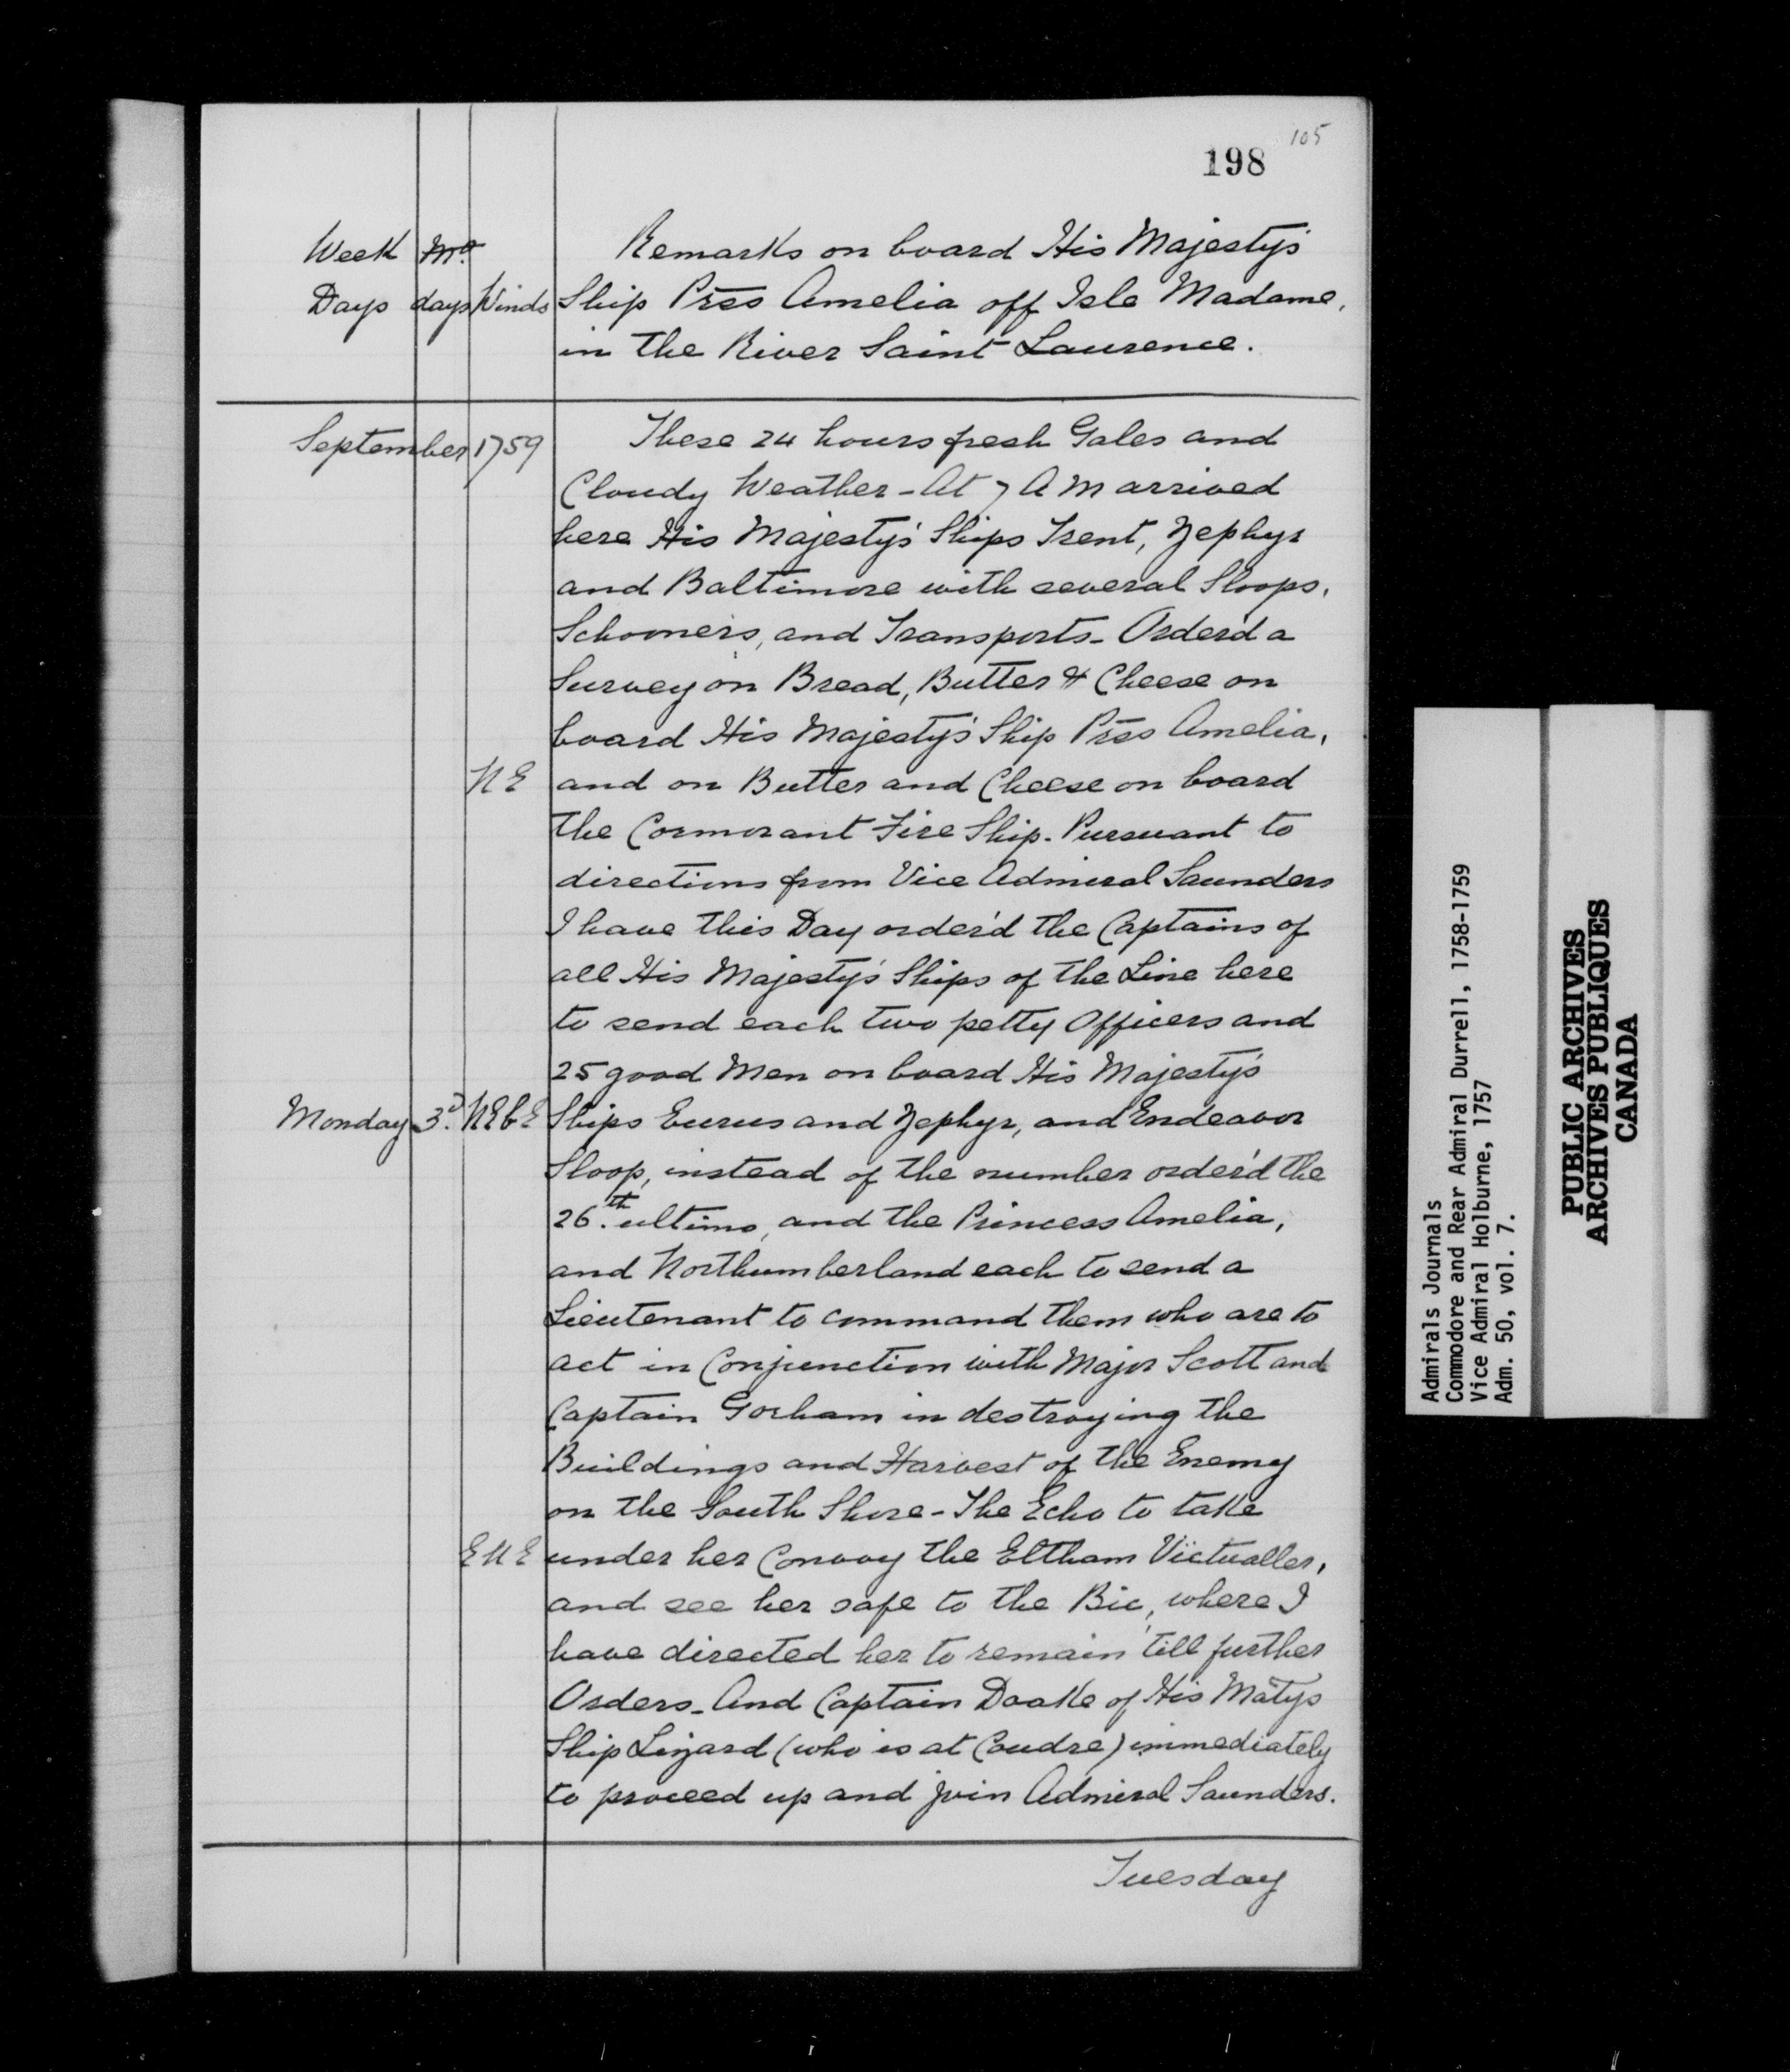 105
198
Week Mo.
Days days Winds
Remarks on board His Majesty's
Ship Prss Amelia off Isle Madame,
in the River Saint Laurence.
September 1759
These 24 hours fresh Gales and
Cloudy Weather - At 7 A M arrived
here His Majesty's Ships Trent, Zephyr
and Baltimore with several Sloops,
Schooners, and Transports - Order'd a
Survey on Bread, Butter & Cheese on
board His Majesty's Ship Prss Amelia,
N E and on Butter and Cheese on board
the Cormorant Fire Ship. Pursuant to
directions from Vice Admiral Saunders
I have this Day order'd the Captains of
all His Majesty's Ships of the Line here
to send each two petty Officers and
25 good Men on board His Majesty's
Monday 3d. N E b E Ships Eurus and Zephyr, and Endeavor
Sloop, instead of the number order'd the
26.th ultimo, and the Princess Amelia,
and Northumberland each to send a
Lieutenant to command them who are to
act in Conjunction with Major Scott and
Captain Gorham in destroying the
Buildings and Harvest of the Enemy
on the South Shore - The Echo to take
E N E under her Convoy the Eltham Victualler,
and see her safe to the Bic, where I
have directed her to remain 'till further
Orders - And Captain Doake of His Matys
Ship Lizard (who is at Coudre) immediately
to proceed up and join Admiral Saunders.
Tuesday
Admirals Journals
Commodore and Rear Admiral Durrell, 1758-1759
Vice Admiral Holburne, 1757
Adm. 50, vol. 7.
PUBLIC ARCHIVES
ARCHIVES PUBLIQUES
CANADA